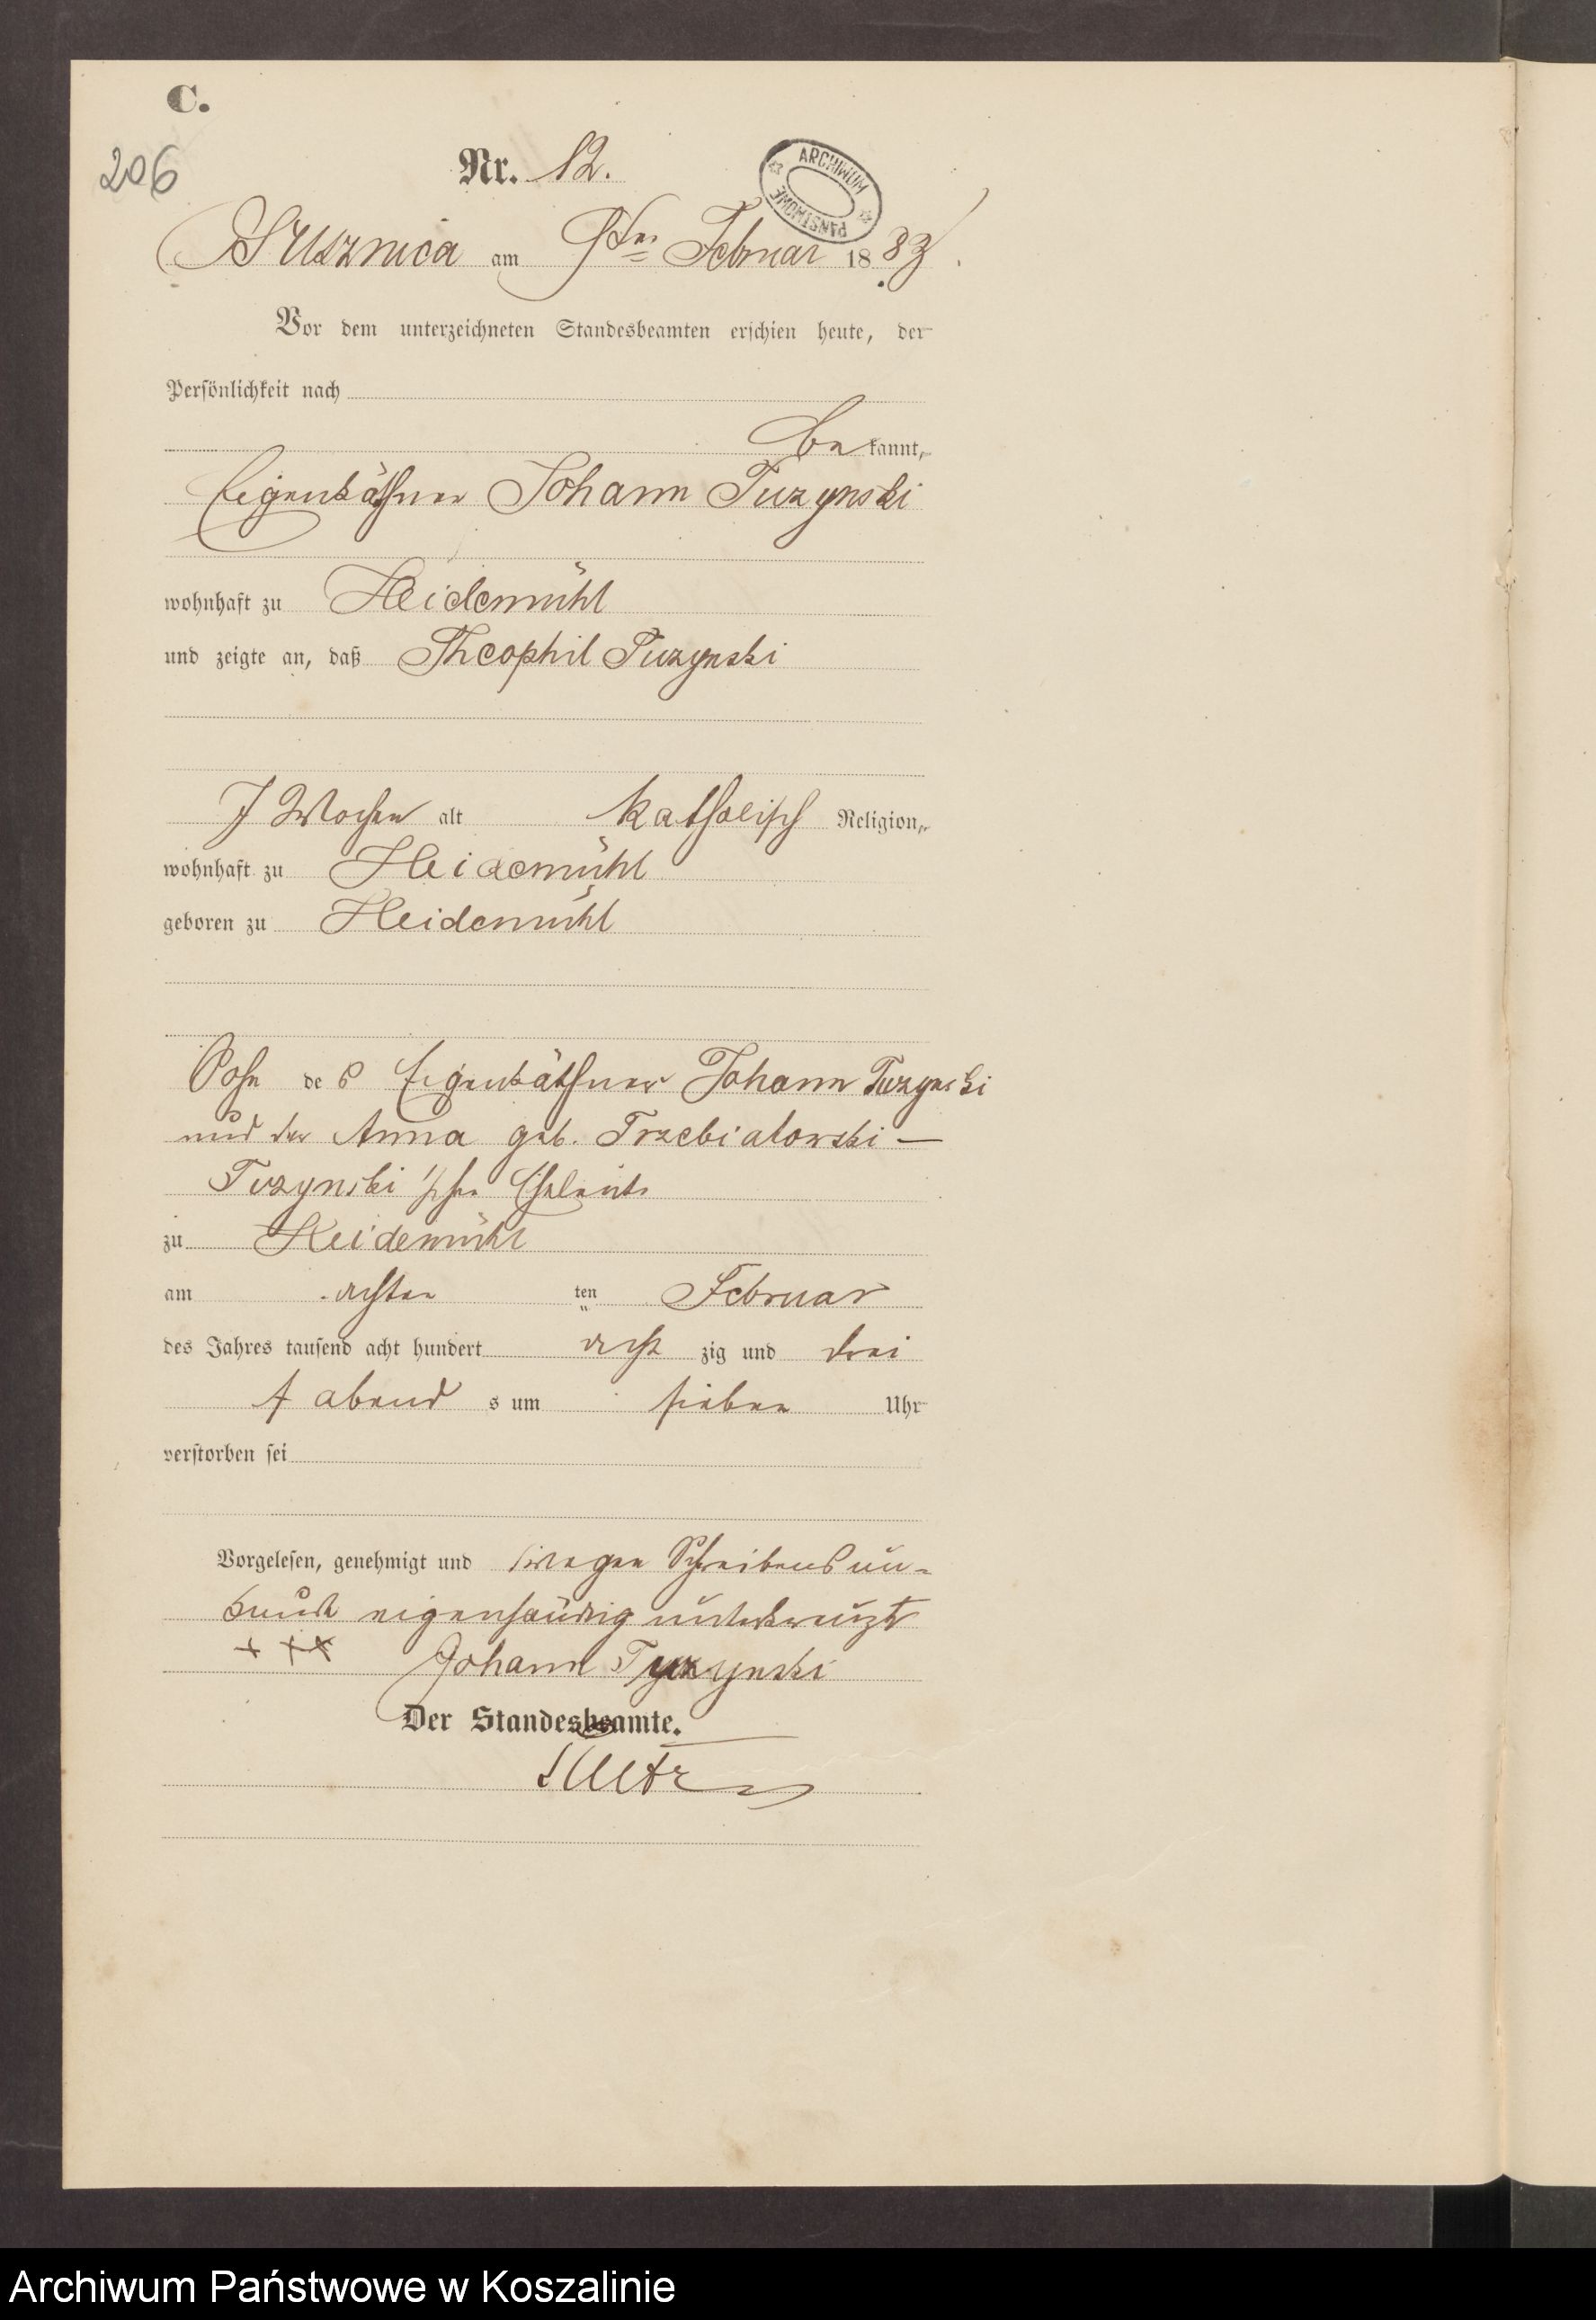 C.
206
Nr. 12.
ARCHIWUM PAŃSTWOWE
Brusznica am 9ten Februar 1883.
Vor dem unterzeichneten Standesbeamten erschien heute, der
Persönlichkeit nach
bekannt,
Eigenkäthner Johann Tuzynski
wohnhaft zu Heidemühl
und zeigte an, daß Theophil Tuzynski
7 Wochen alt katholisch Religion,
wohnhaft zu Heidemühl
geboren zu Heidemühl
Sohn des Eigenkäthner Johann Tuzynski
und der Anna geb. Trzebiatowski —
Tuzynski'schen Eheleute
zu Heidemühl
am achten ten Februar
des Jahres tausend acht hundert acht zig und drei
Abend s um sieben Uhr
verstorben sei
Vorgelesen, genehmigt und wegen Schreibens un-
kunde eigenhändig unterkreuzt
+ + + Johann Tyzynski
Der Standesbeamte.
Archiwum Państwowe w Koszalinie